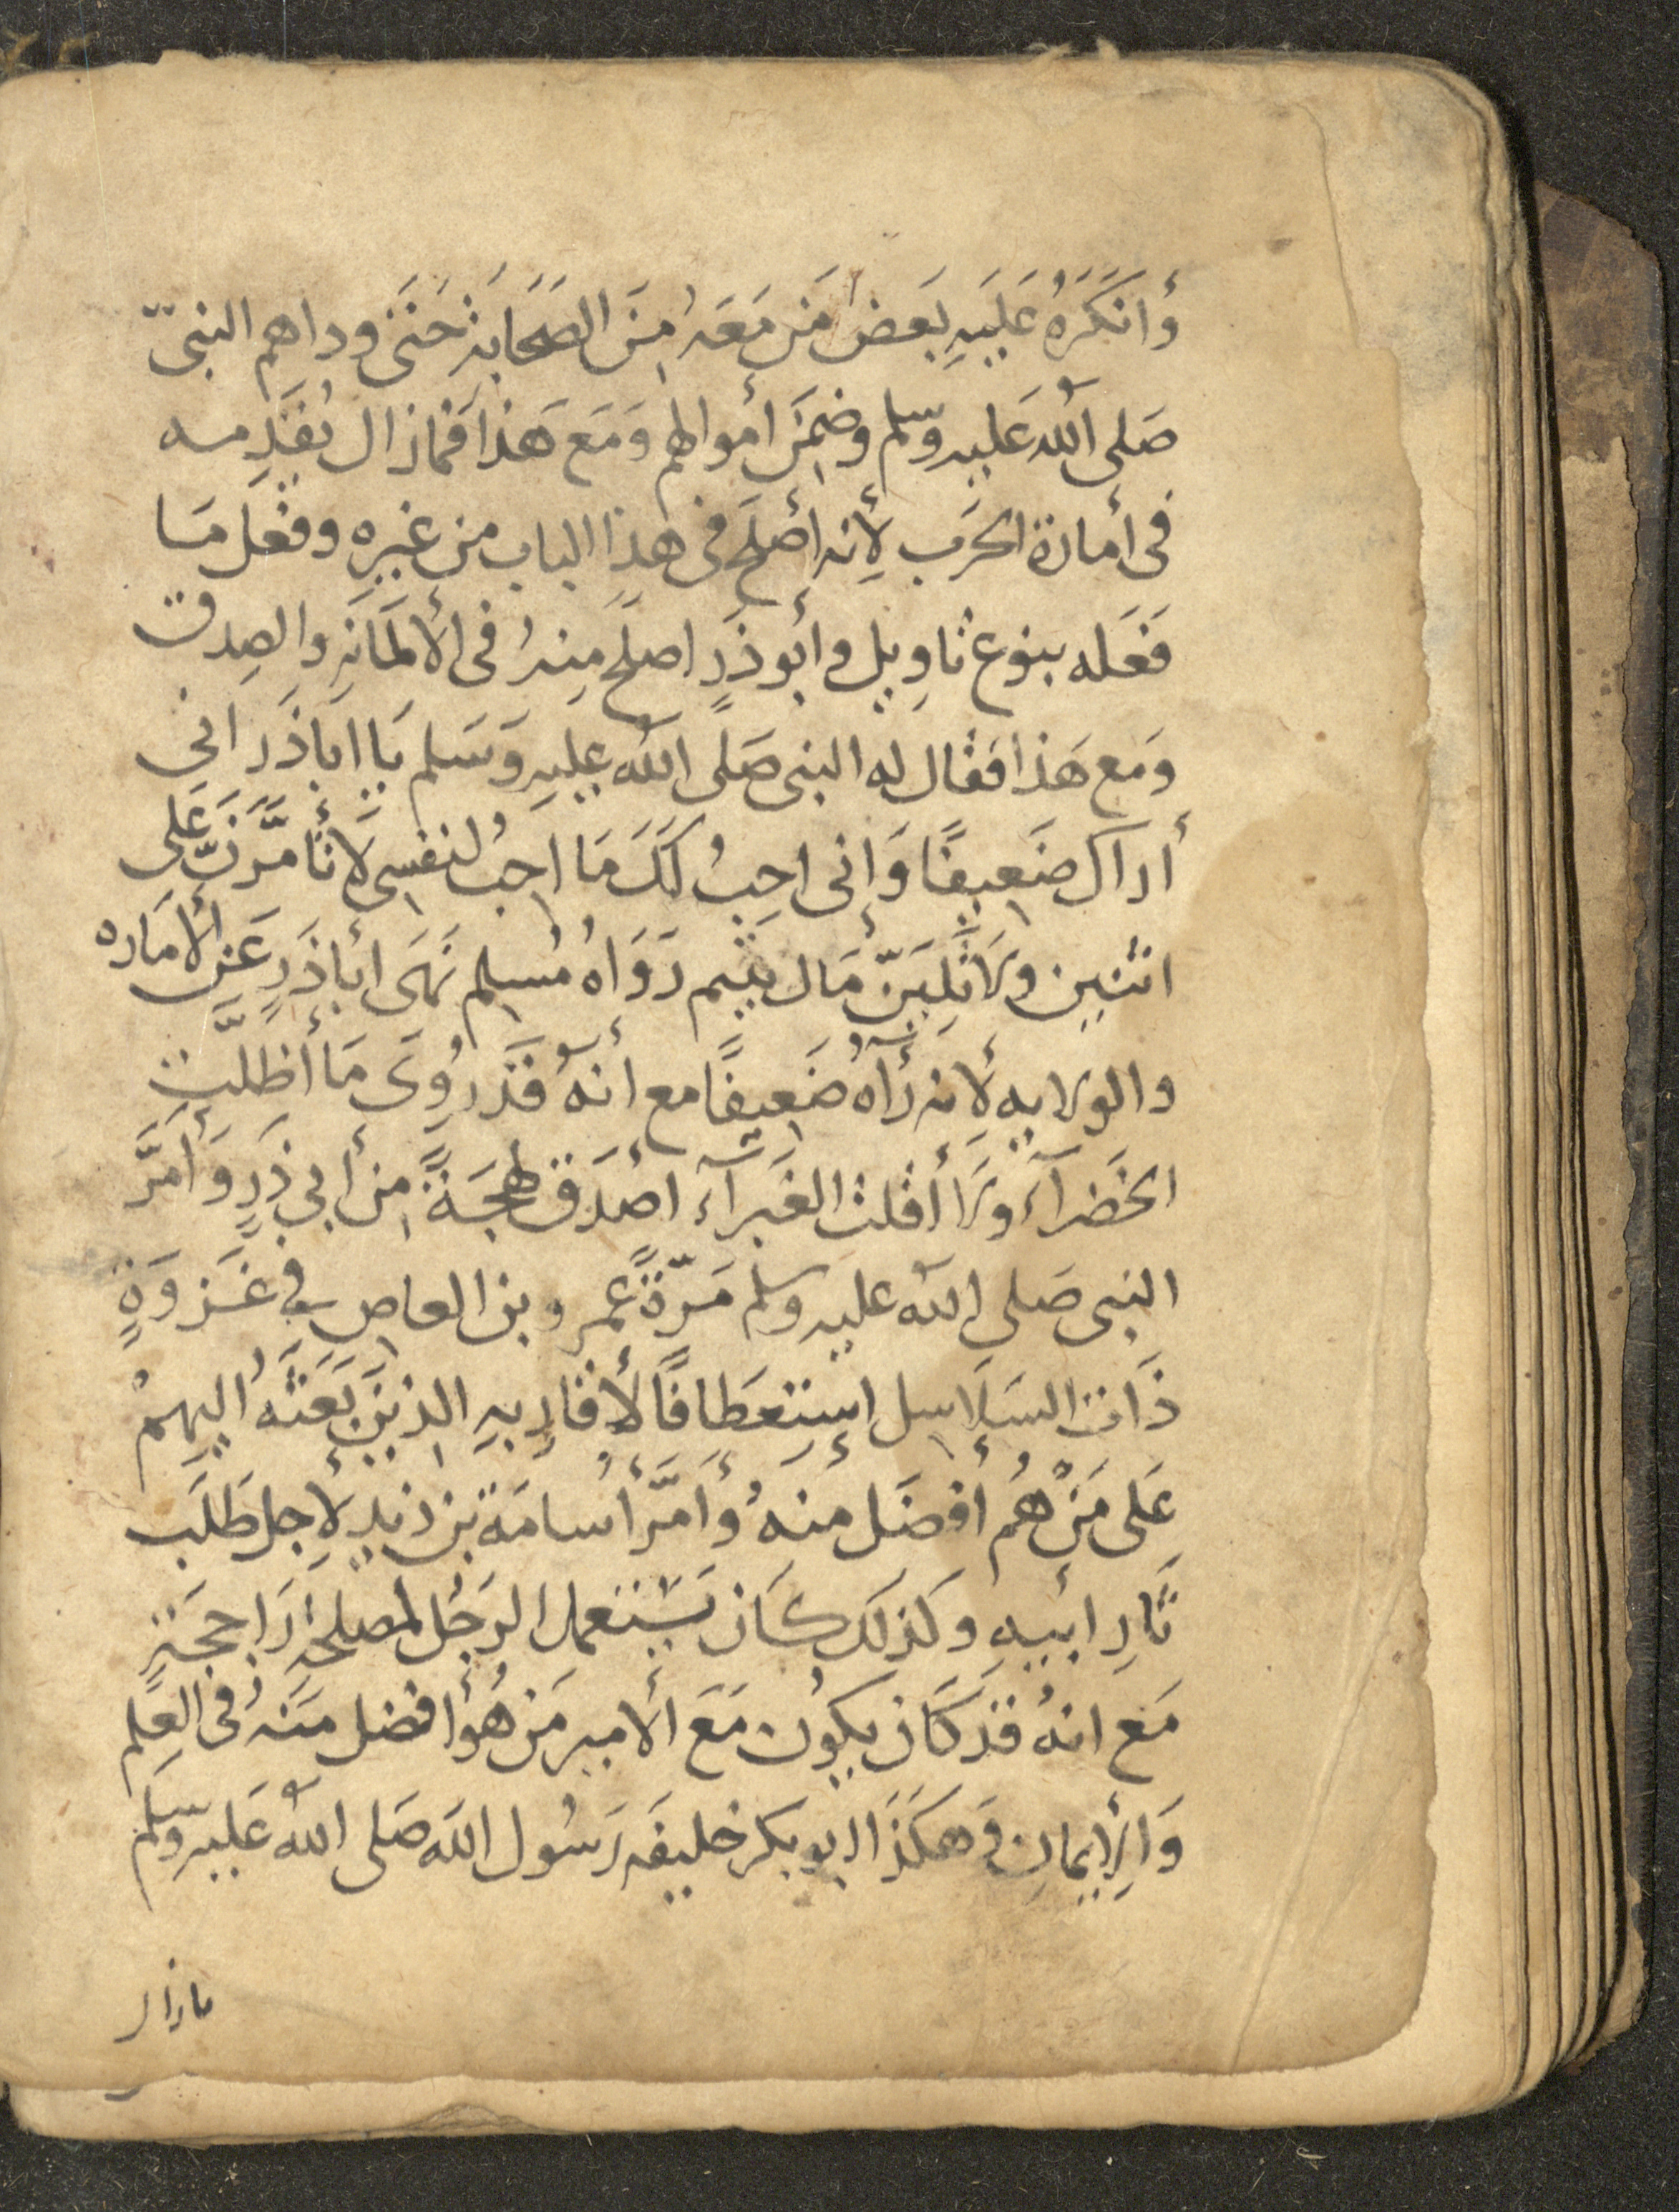 وَأنكَرَهُ عَلَيَهِ بَعَضُ مَن مَعَهُ مِنَ الصَحَابَةِ حَتَى وداهم النبىّ
صَلى اللهُ عَليه وسلم وضمِنَ أموالهم وَمَع هَذا فمازال يُقَدِمه
فى أمارة الحَرَب لأِنه أصلَح فى هذا الباب من غيرِه وفعَل مَا
فَعَله بنوع تاوِيل وأبو ذَرٍ اصلَح مِنهُ فى الأمَانَةِ والصِدق
وَمَع هَذا فقال له النبى صَلَى اللهُ عَليِهِ وَسَلم يَا ابَاذَر انى
أراك ضَعِيفًا وَإنى احِبُ لَكَ مَا احِبُ لنفسِى لَا تَأمَّرَنَّ عَلى
اثنين ولَا تَلِيَنّ مَال يتيم رَوَاهُ مُسلِم نَهَى أبَاذَرٍ عَن الأمَاره
والولايه لأِنه رَأهُ ضَعِيفًا مع أنهُ قَد رُوِىَ مَا أظلَّتِ
الخَضرآءَ ولَا أقلت الغَبرآء أصدَق لهجَةً مِن أبى ذَرٍ وَأَمَّرَ
النبى صَلى الله عليه وسلم مَرّةً عمرو بن العاصِ فى غَزوَةِ
ذَات السَلَاسِل إستِعَطافًا لأقارِبِهِ الذِين بَعَثَهُ اليهِمْ
عَلى مَن هُم أفضَل منهُ وَأَمَّرَ أُسامَة بن زيدٍ لأِجل طَلَب
ثَارِ ابيهِ وكذلك كَان يَستعمل الرَجُل لمصلَحَةٍ رَاجحَةٍ
مَع انهُ قد كَان يكوُن مَعَ الأمير مَن هُوَ أفضل منهُ فى العِلم
وَالإيمانِ وَهكَذَا ابو بكر خليفَه رَسُول الله صَلى اللهُ عَليه وسَلم
مازال